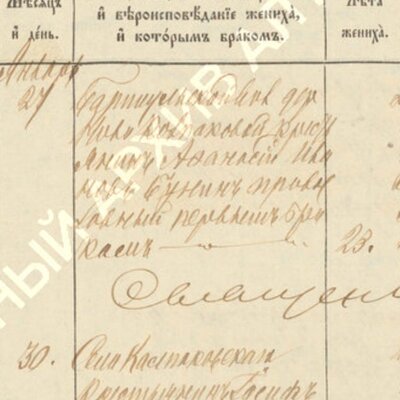 Мѣсяцъ и день.
и вѣроисповѣданіе жениха, и которымъ бракомъ.
Лѣта жениха.
Январь
27
дер
Ново Колпаковой кресть
янинъ Аѳанасій Ива
новъ Бунинъ правос
лавный первымъ бра
комъ
23.
Священ
30.
Села Калпаковская
крестьянинъ Іосифъ
НЫЙ АРХИВ АЛ